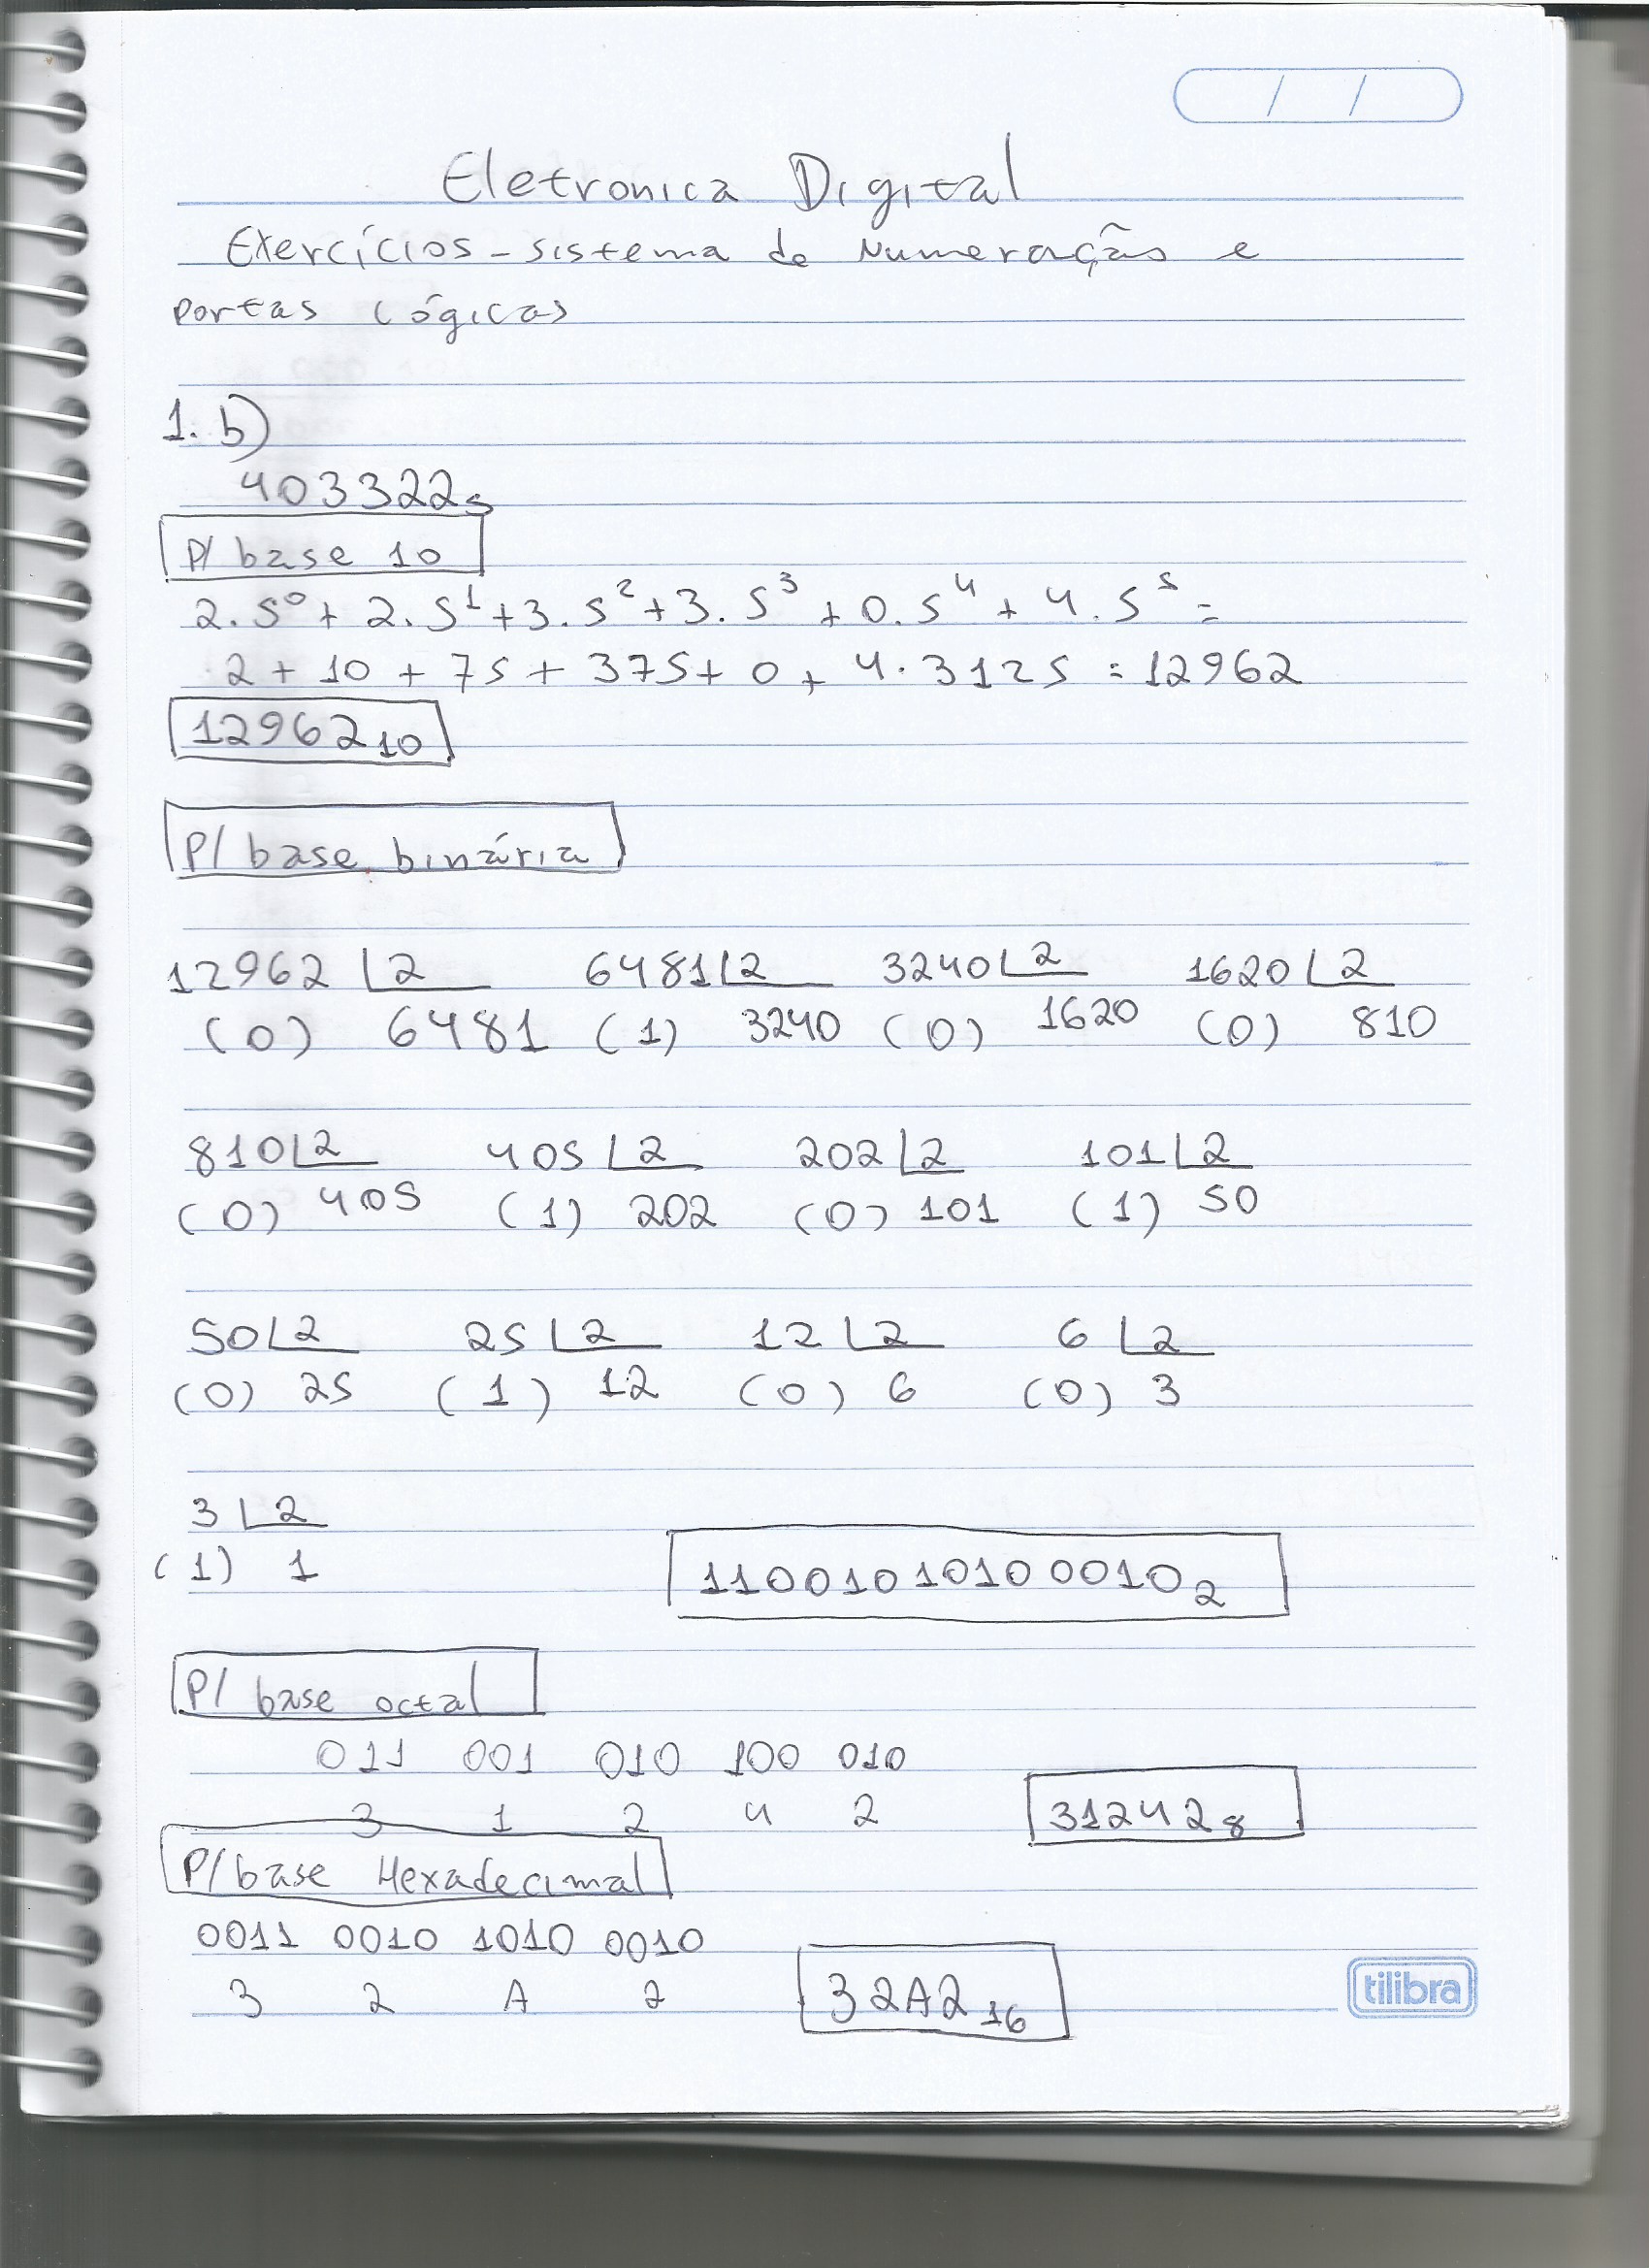 / /
Eletronica Digital
Exercícios - sistema de Numeração e
portas lógicas
1. b)
403322₅
P/ base 10
2.5⁰ + 2.5¹ + 3.5² + 3.5³ + 0.5⁴ + 4.5⁵ =
2 + 10 + 75 + 375 + 0 + 4.3125 = 12962
12962₁₀
P/ base binária
12962 |2 6481 |2 3240 |2 1620 |2
(0) 6481 (1) 3240 (0) 1620 (0) 810
810 |2 405 |2 202 |2 101 |2
(0) 405 (1) 202 (0) 101 (1) 50
50 |2 25 |2 12 |2 6 |2
(0) 25 (1) 12 (0) 6 (0) 3
3 |2
(1) 1 11001010100010₂
P/ base octal
011 001 010 100 010
3 1 2 4 2 31242₈
P/ base Hexadecimal
0011 0010 1010 0010
3 2 A 2 32A2₁₆
tilibra